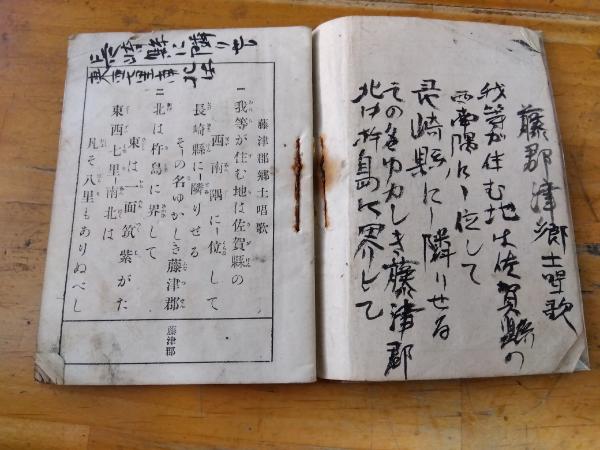 藤郡津郷土唱歌
我等が住む地は佐賀縣の
西南隅に位して
長崎縣に隣りせる
その名ゆかしき藤津郡
北は杵島に界して
長崎縣に隣りせ
東西七里南北は
藤津郡郷土唱歌
一 我等が住む地は佐賀縣の
西南隅に位して
長崎縣に隣りせる
その名ゆかしき藤津郡
二 北は杵島に界して
東は一面筑紫がた
東西七里南北は
凡そ八里もありぬべし
藤津郡